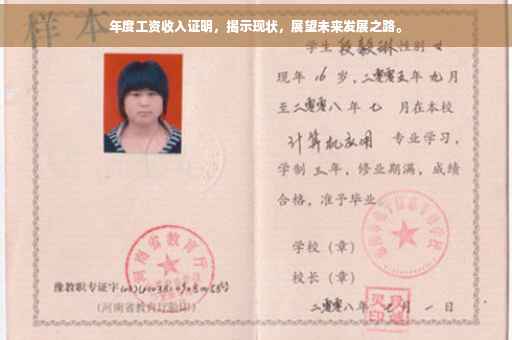 年度工资收入证明，揭示现状，展望未来发展之路。
样本
学生 段毅琳 性别 女
现年 16 岁，二零零五年 九 月
至二零零八 年 七 月在本校
计算机应用 专业学习，
学制 三 年，修业期满，成绩
合格，准予毕业
学校（章）
校长（章）
二零零八年 七 月 一 日
河南省教育厅
豫教职专证字
(河南省教育厅验印)